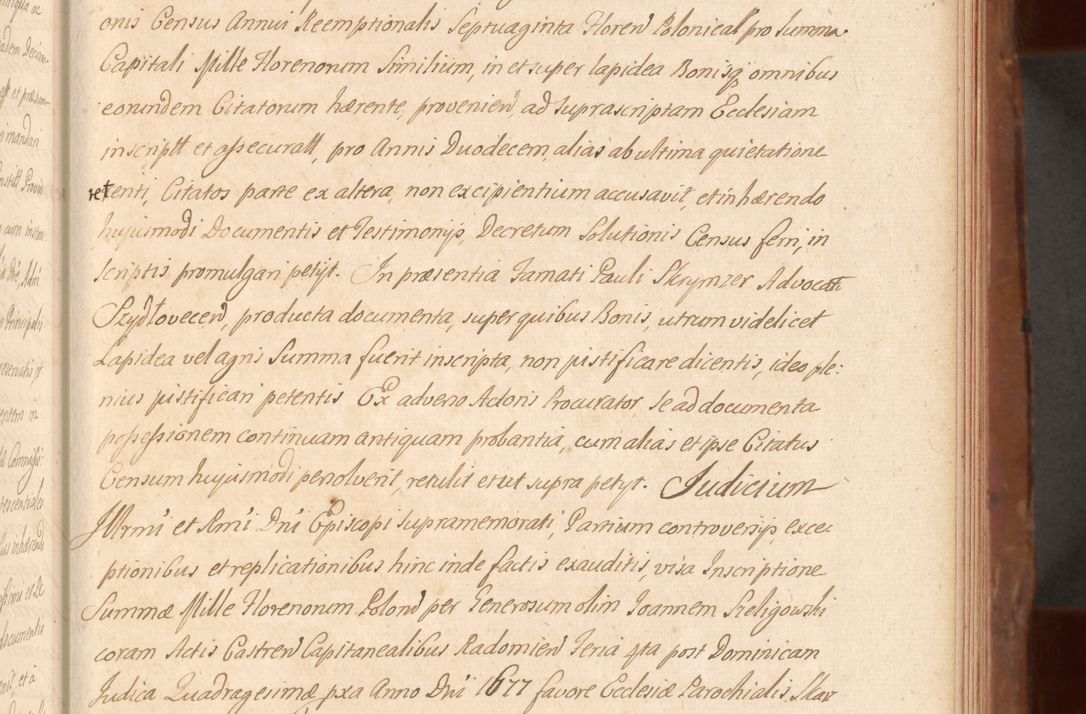 onis Census Annui Reemptionalis Septuaginta Floren Polonical pro Summa
Capitali Mille Florenorum Similium, in et super lapidea Bonisq omnibus
eorundem Citatorum hærente, provenien, ad Suprascriptam Ecclesiam
inscriptt et assecuratt, pro Annis Duodecem, alias ab ultima quietatione
retenti, Citatos parte ex altera, non excipientium accusavit, et inhærendo
hujusmodi Documentis et Testimonijs, Decretum Solutionis Census ferri, in
Scriptis promulgari petijt. In præsentia Famati Pauli Skrynzer Advocati
Szydłovecen, producta documenta, super quibus Bonis, utrum videlicet
Lapidea vel agris Summa fuerit inscripta, non justificare dicentis, ideo ple:
nius justificari petentis Ex adverso Actoris Procurator, se ad documenta
possessionem continuam antiquam probantia, cum alias et ipse Citatus
Censum hujusmodi persolverit, retulit et ut supra petyt. Judicium
Illrmi et Rmi Dni Episcopi supramemorati, Partium controversijs, exce:
ptionibus et replicationibus hinc inde factis exauditis, visa Inscriptione
Summæ Mille Florenorum Polon per Generosum olim Joannem Szeligowski
coram Actis Castren Capitanealibus Radomien Feria 4ta post Dominicam
Judica Quadragesimæ pxa Anno Dni 1677 favore Ecclesiæ Parochialis